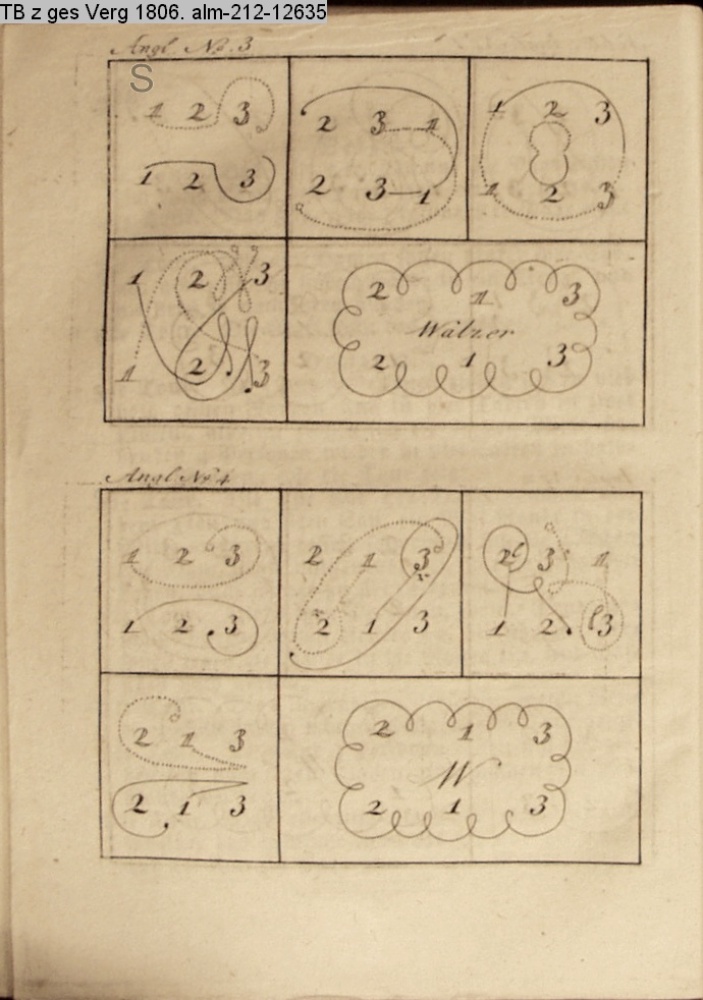 TB z ges Verg 1806. alm-212-12635
Angl. No. 3
S
1 2 3
1 2 3
2 3 1
2 3 1
1 2 3
1 2 3
1 2 3
1 2 3
2 1 3
Walzer
2 1 3
Angl. No. 4
1 2 3
1 2 3
2 1 3
2 1 3
2 3 1
1 2 3
2 1 3
2 1 3
2 1 3
W
2 1 3